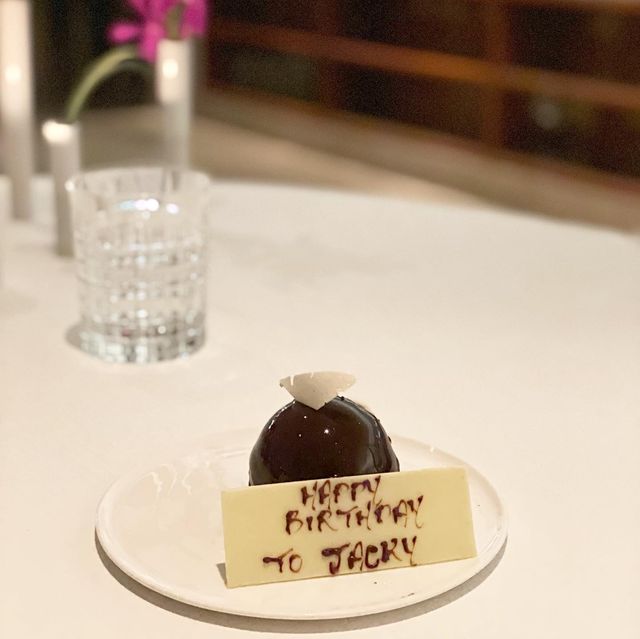 HAPPY
BIRTHDAY
TO JACKY